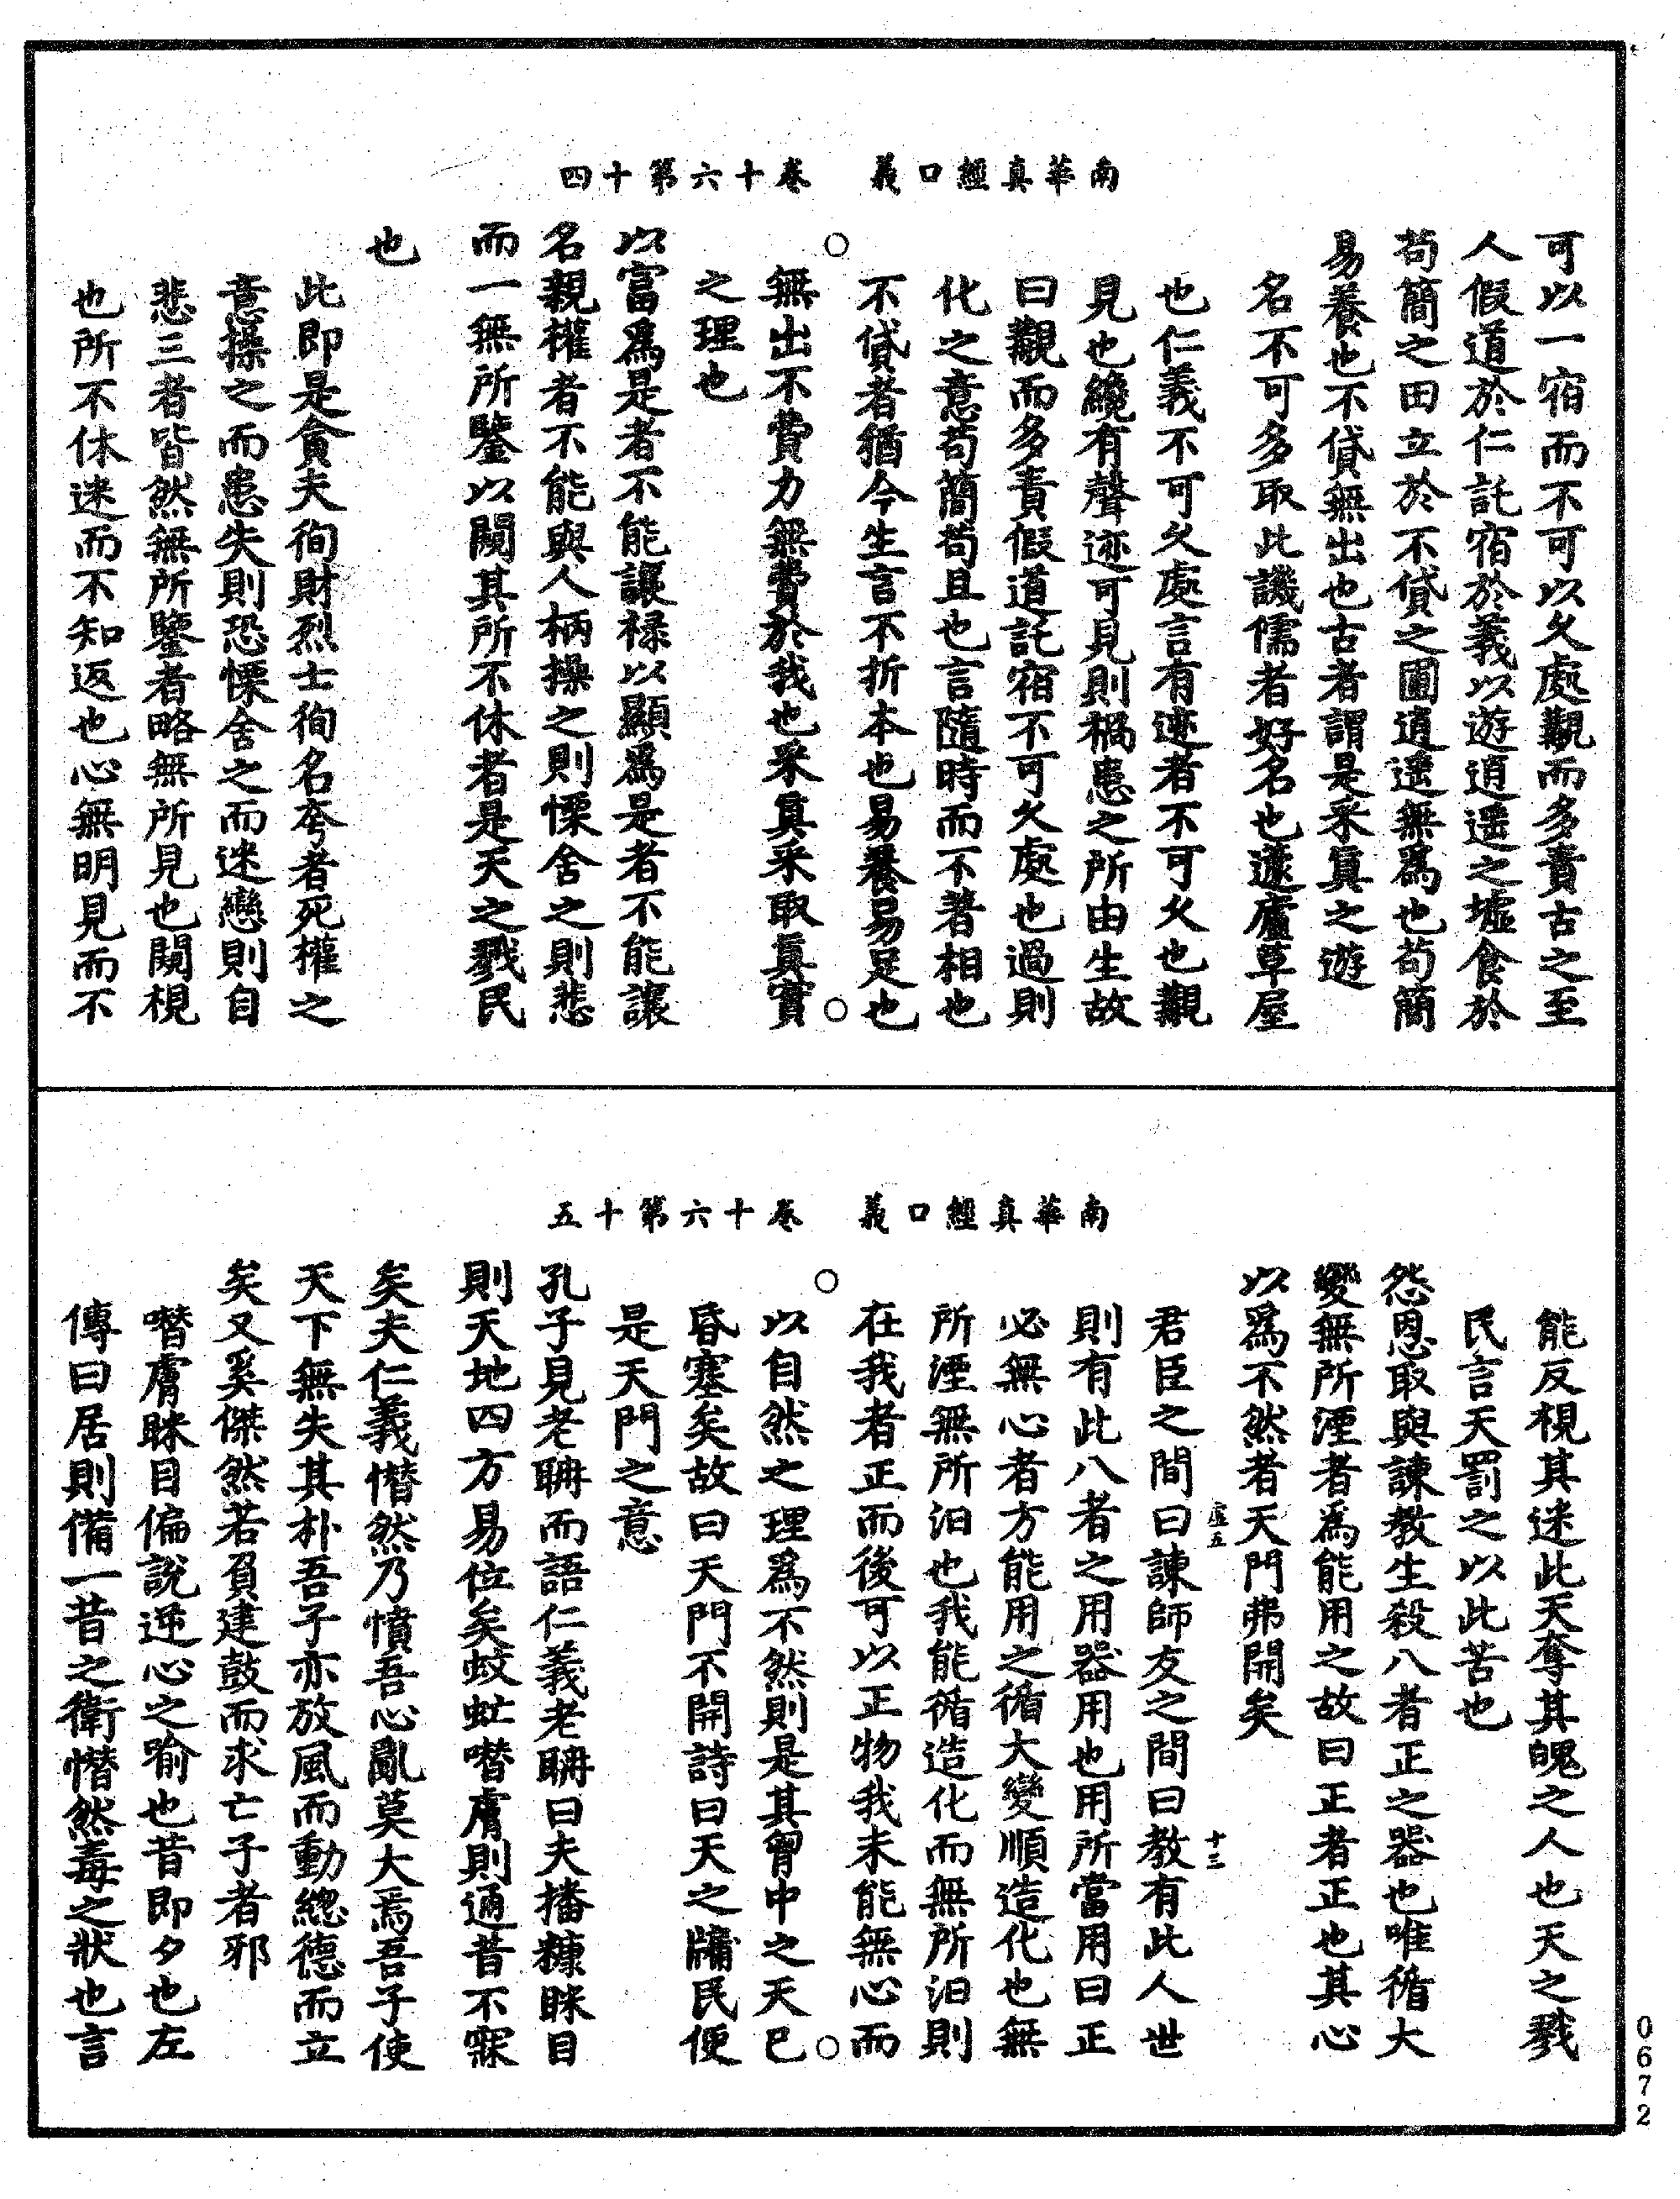 南華真經口義　卷十六第十四
可以一宿而不可以久處覯而多責古之至
人假道於仁託宿於義以遊逍遥之墟食於
苟簡之田立於不貸之圃逍遥無爲也苟簡
易養也不貸無出也古者謂是采真之遊
名不可多取此譏儒者好名也蘧廬草屋
也仁義不可久處言有迹者不可久也覯
見也纔有聲迹可見則禍患之所由生故
曰覯而多責假道託宿不可久處也過則
化之意苟簡苟且也言隨時而不著相也
不貸者猶今生言不折本也易養易足也
無出不費力無費於我也采真采取真實
之理也
以富爲是者不能讓禄以顯爲是者不能讓
名親權者不能與人柄操之則慄舍之則悲
而一無所鑒以闚其所不休者是天之戮民
也
此即是貪夫徇財烈士徇名夸者死權之
意操之而患失則恐慄舍之而迷戀則自
悲三者皆然無所鑒者略無所見也闚視
也所不休迷而不知返也心無明見而不
南華真經口義　卷十六第十五
能反視其迷此天奪其魄之人也天之戮
民言天罰之以此苦也
怨恩取與諫教生殺八者正之器也唯循大
變無所湮者爲能用之故曰正者正也其心
以爲不然者天門弗開矣
虛五
十三
君臣之間曰諫師友之間曰教有此人世
則有此八者之用器用也用所當用曰正
必無心者方能用之循大變順造化也無
所湮無所汩也我能循造化而無所汩則
在我者正而後可以正物我未能無心而
以自然之理爲不然則是其胷中之天已
昏塞矣故曰天門不開詩曰天之牖民便
是天門之意
孔子見老聃而語仁義老聃曰夫播糠眯目
則天地四方易位矣蚊虻噆膚則通昔不寐
矣夫仁義憯然乃憤吾心亂莫大焉吾子使
天下無失其朴吾子亦放風而動緫德而立
矣又奚傑然若負建鼓而求亡子者邪
噆膚眯目偏說逆心之喻也昔即夕也左
傳曰居則備一昔之衛憯然毒之狀也言
0672